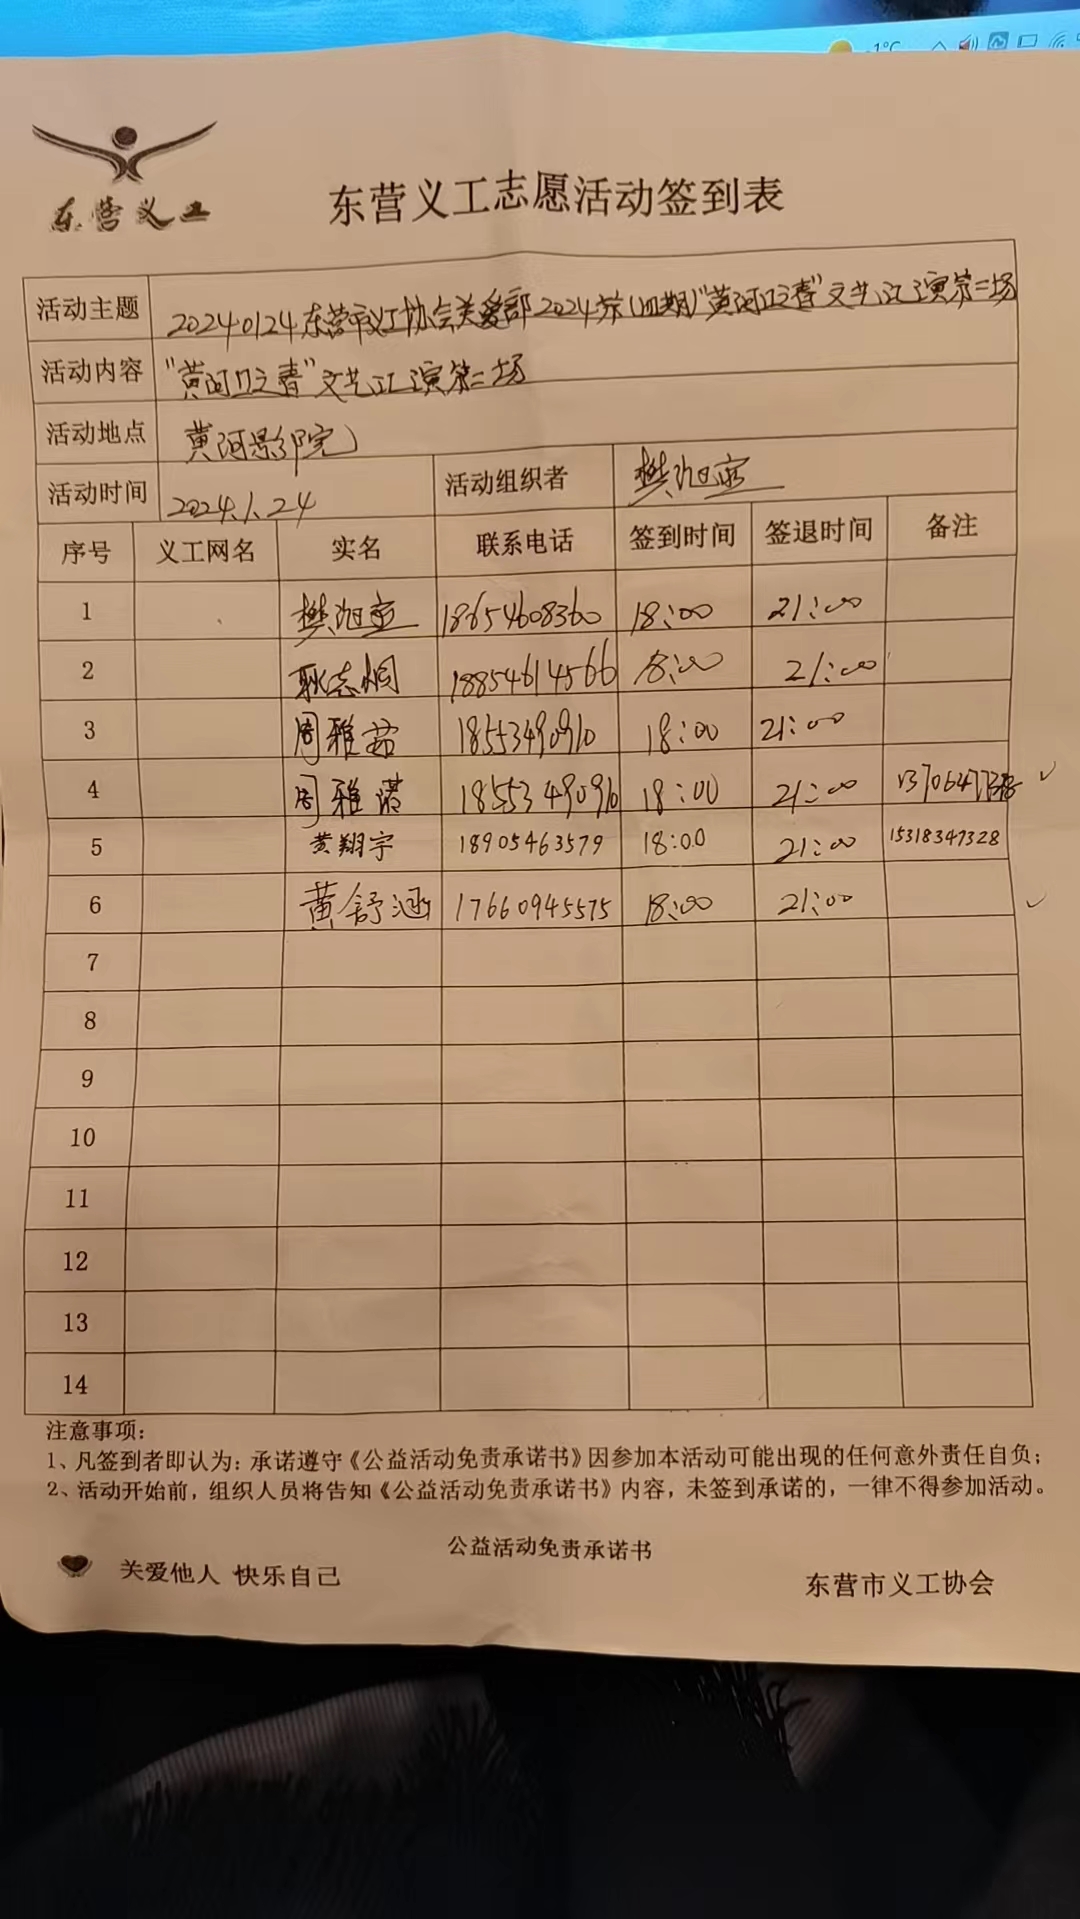 -1°C
东营义工
东营义工志愿活动签到表
活动主题 20240124东营市义工协会关爱部2024第(四期)"黄河口之春"文艺汇演第二场
活动内容 "黄河口之春"文艺汇演第二场
活动地点 黄河影院
活动时间 2024.1.24 活动组织者 樊旭
序号 义工网名 实名 联系电话 签到时间 签退时间 备注
1 樊旭 18654608360 18:00 21:00
2 耿志炯 18854614566 18:00 21:00
3 周雅茹 18553490910 18:00 21:00
4 周雅诺 18553490910 18:00 21:00
5 黄翔宇 18905463579 18:00 21:00 15318347328
6 黄舒涵 17660945575 18:00 21:00
7
8
9
10
11
12
13
14
注意事项:
1、凡签到者即认为:承诺遵守《公益活动免责承诺书》因参加本活动可能出现的任何意外责任自负;
2、活动开始前,组织人员将告知《公益活动免责承诺书》内容,未签到承诺的,一律不得参加活动。
公益活动免责承诺书
关爱他人 快乐自己
东营市义工协会